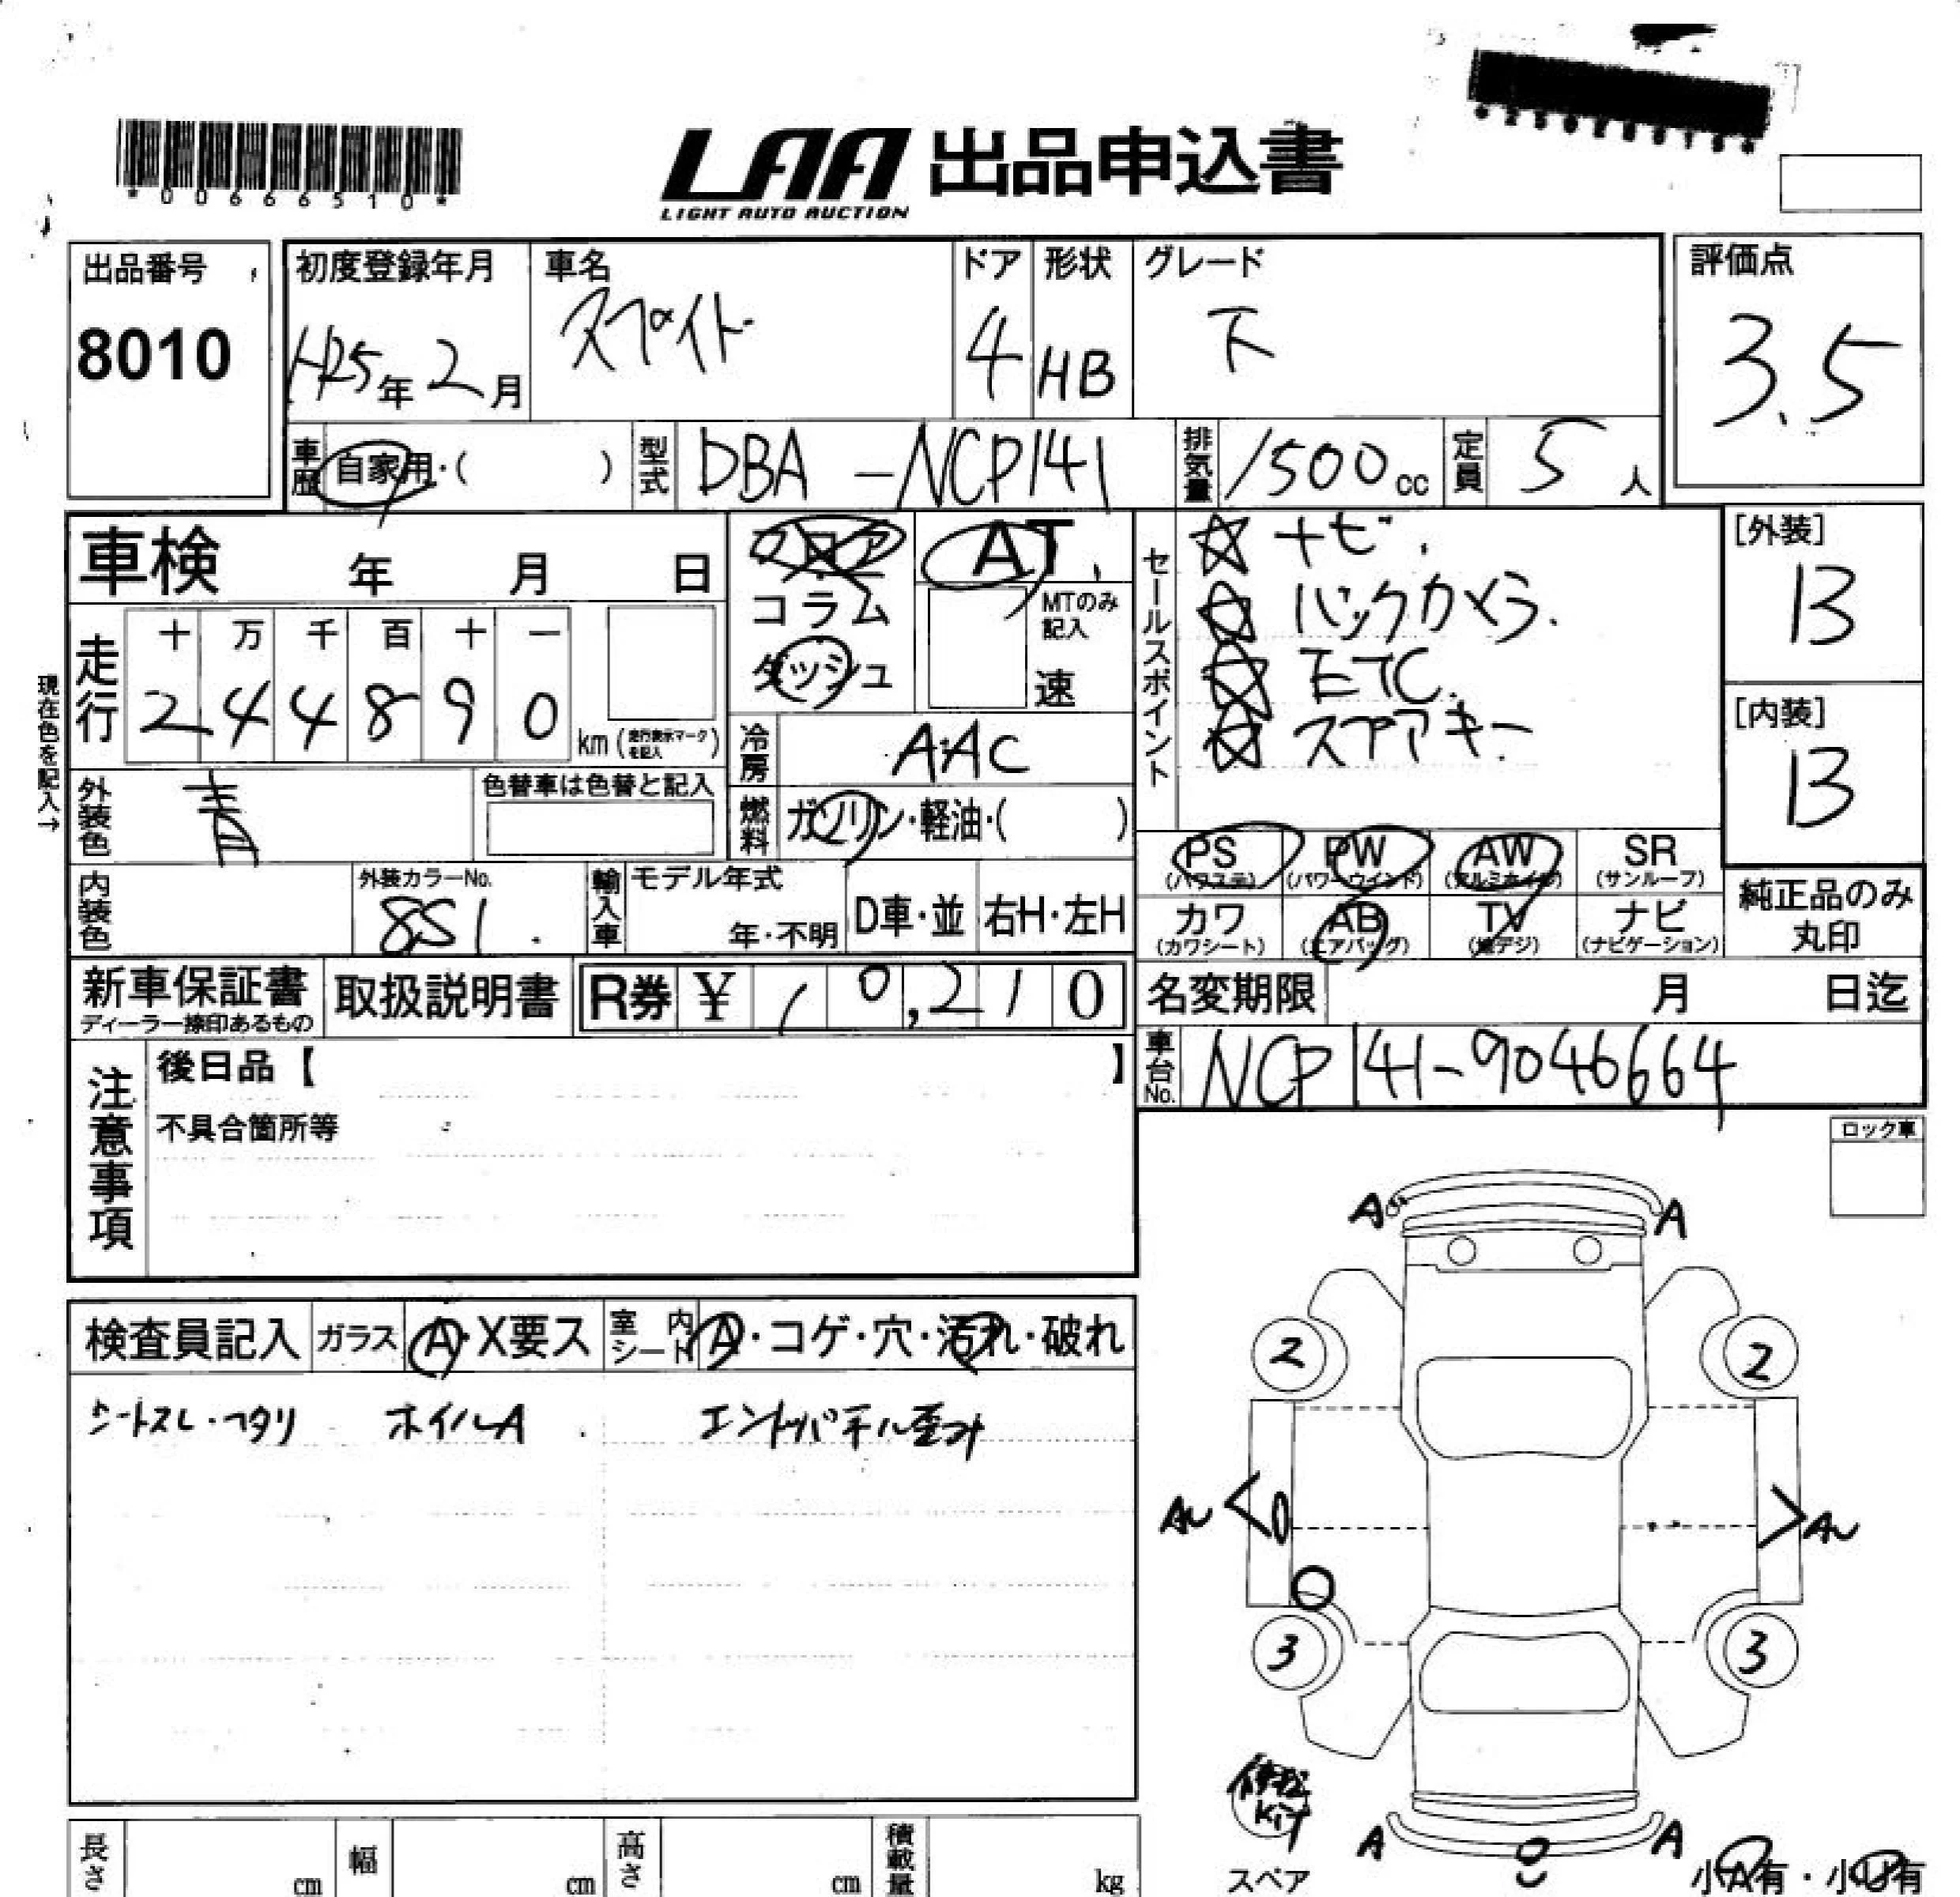 *00666510*
LAA 出品申込書
LIGHT AUTO AUCTION
出品番号
8010
初度登録年月
H25年2月
車名
スペイド
ドア
4
形状
HB
グレード
F
評価点
3.5
車歴
自家用・( )
型式
DBA-NCP141
排気量
1500cc
定員
5人
車検 年 月 日
フロア
コラム
ダッシュ
AT
MTのみ記入
速
セールスポイント
☆ ナビ.
☆ バックカメラ.
☆ ETC.
☆ スペアキー
[外装]
B
[内装]
B
現在色を記入→
走行
十 万 千 百 十 一
2 4 4 8 9 0 km (走行表示マークを記入)
冷房
AAC
燃料
ガソリン・軽油・( )
外装色
青
色替車は色替と記入
内装色
外装カラーNo.
8S1.
輸入車
モデル年式
年・不明
D車・並
右H・左H
PS (パワステ)
PW (パワーウインド)
AW (アルミホイル)
SR (サンルーフ)
カワ (カワシート)
AB (エアバッグ)
TV (地デジ)
ナビ (ナビゲーション)
純正品のみ丸印
新車保証書
ディーラー捺印あるもの
取扱説明書
R券 ¥ 10,210
名変期限 月 日迄
車台No.
NCP141-9046664
注意事項
後日品【 】
不具合箇所等
ロック車
検査員記入
ガラス
A・X要ス
室内シート
A・コゲ・穴・汚れ・破れ
シートスレ・ヘタリ ホイルA. エンドパネル歪み
A A
2 2
3 3
A A
修理Kit
スペア
小A有・小U有
長さ cm
幅 cm
高さ cm
積載量 kg